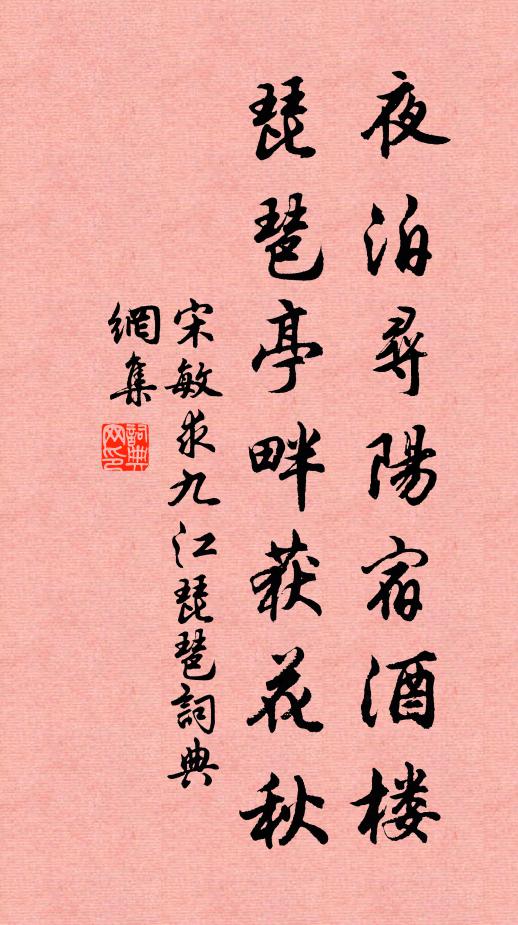 夜泊尋陽宿酒楼
琵琶亭畔荻花秋
宋敏求九江琵琶詞典
網集
詞典網印